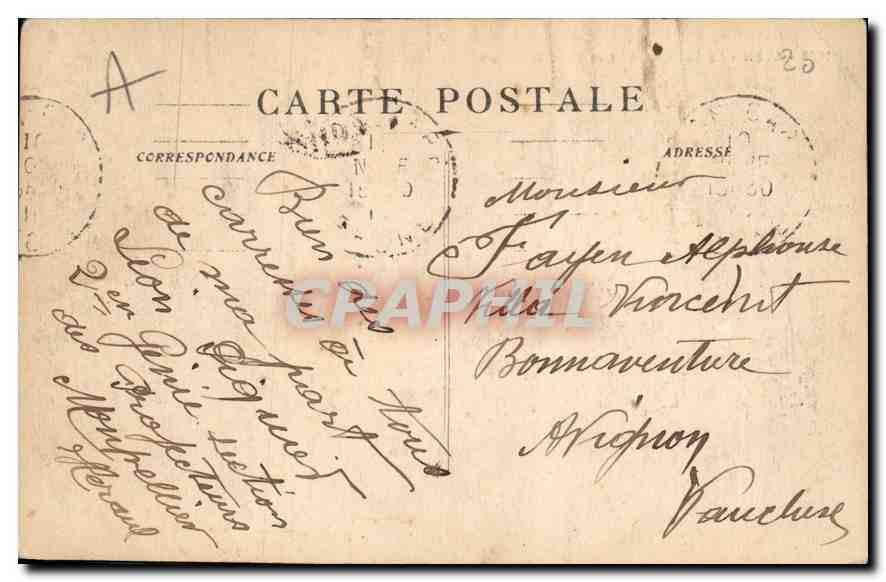 A
25
CARTE POSTALE
CORRESPONDANCE
ADRESSE
Bien des à tous
carresses
de ma part
Signer
Léon Génie section
2me en Projecteurs
des Montpellier
Hérault
Monsieur
Fayen Alphonse
Villa Vincent
Bonnaventure
Avignon
Vaucluse
CRAPHIL